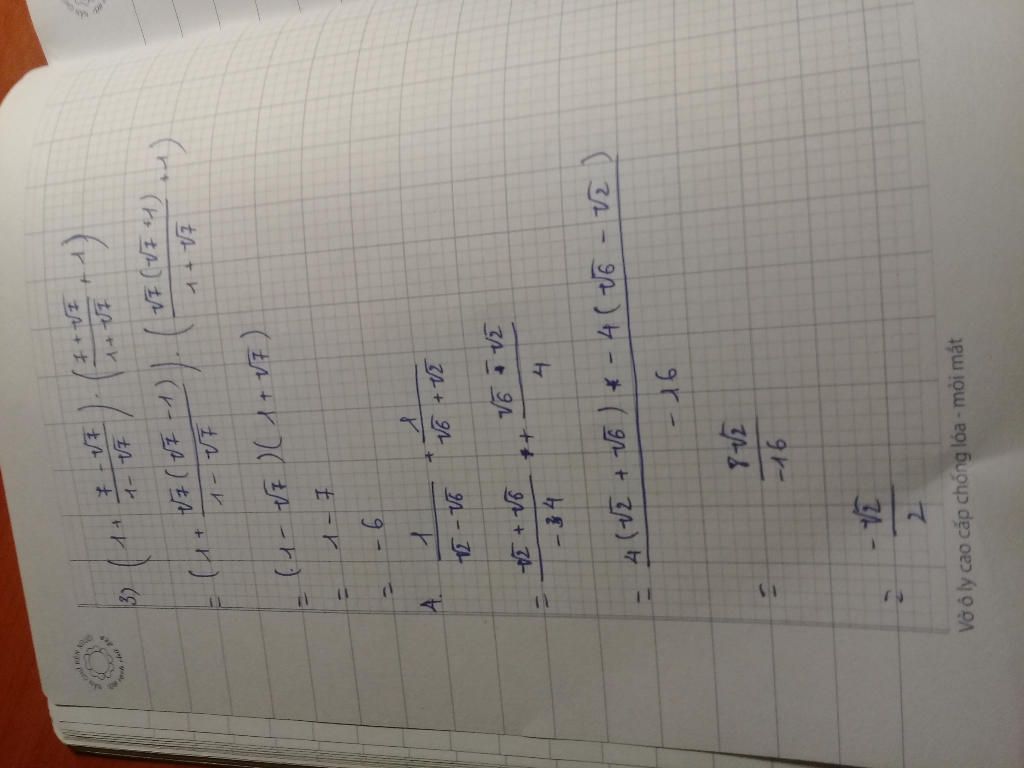 3) (1 + (7 - √7)/(1 - √7)) . ((7 + √7)/(1 + √7) + 1)
= (1 + (√7(√7 - 1))/(1 - √7)) . ((√7(√7 + 1))/(1 + √7) + 1)
= (1 - √7)(1 + √7)
= 1 - 7
= -6
4. 1/(√2 - √6) + 1/(√6 + √2)
= (√2 + √6)/(-4) + (√6 - √2)/4
= (4(√2 + √6) - 4(√6 - √2))/(-16)
= 8√2/-16
= -√2/2
Vở ô ly cao cấp chống lóa - mỏi mắt